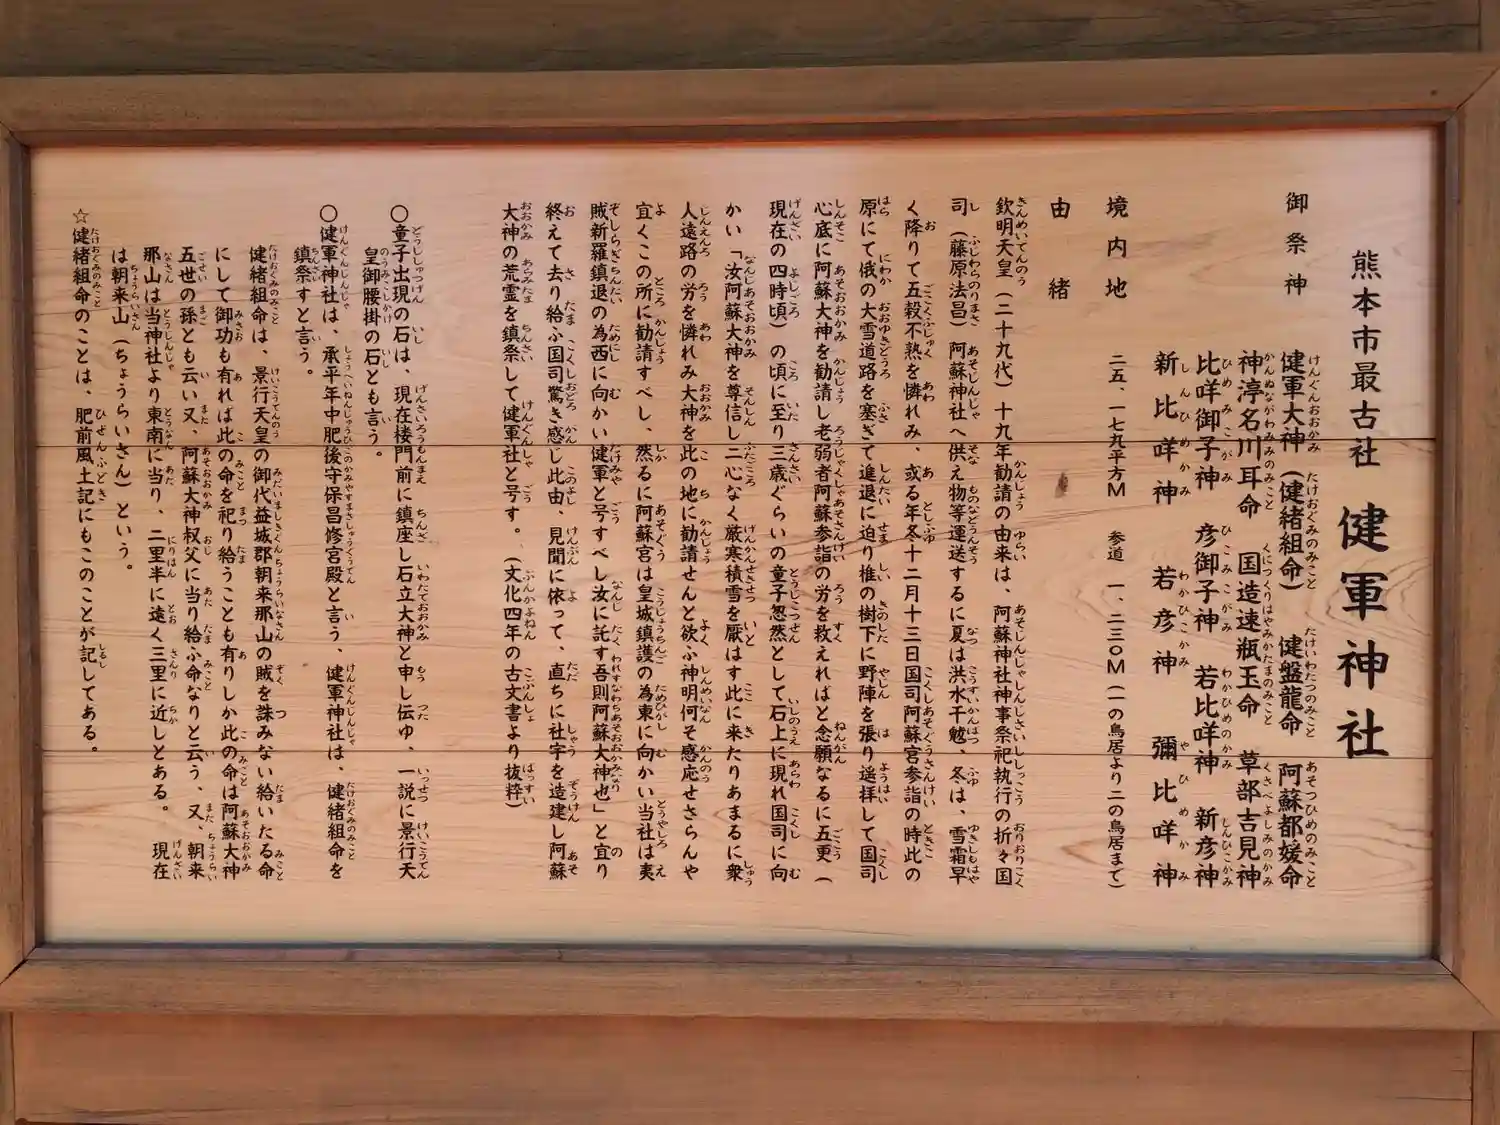 熊本市最古社 健軍神社
御祭神 健軍大神(健緒組命) 健盤龍命 阿蘇都媛命
神渟名川耳命 国造速瓶玉命 草部吉見神
比咩御子神 彦御子神 若比咩神 新彦神
新比咩神 若彦神 彌比咩神
境内地 二五、一七九平方M 参道 一、二三〇M(一の鳥居より二の鳥居まで)
由緒
欽明天皇(二十九代)十九年勧請の由来は、阿蘇神社神事祭祀執行の折々国
司(藤原法昌)阿蘇神社へ供え物等運送するに夏は洪水干魃、冬は、雪霜早
く降りて五穀不熟を憐れみ、或る年冬十二月十三日国司阿蘇宮参詣の時此の
原にて俄の大雪道路を塞ぎて進退に迫り椎の樹下に野陣を張り遥拝して国司
心底に阿蘇大神を勧請し老弱者阿蘇参詣の労を救えればと念願なるに五更(
現在の四時頃)の頃に至り三歳ぐらいの童子忽然として石上に現れ国司に向
かい「汝阿蘇大神を尊信し二心なく厳寒積雪を厭はす此に来たりあまるに衆
人遠路の労を憐れみ大神を此の地に勧請せんと欲ふ神明何そ感応せさらんや
宜くこの所に勧請すべし、然るに阿蘇宮は皇城鎮護の為東に向かい当社は夷
賊新羅鎮退の為西に向かい健軍と号すべし汝に託す吾則阿蘇大神也」と宣り
終えて去り給ふ国司驚き感じ此由、見聞に依って、直ちに社字を造建し阿蘇
大神の荒霊を鎮祭して健軍社と号す。(文化四年の古文書より抜粋)
〇童子出現の石は、現在楼門前に鎮座し石立大神と申し伝ゆ、一説に景行天
皇御腰掛の石とも言う。
〇健軍神社は、承平年中肥後守保昌修宮殿と言う、健軍神社は、健緒組命を
鎮祭すと言う。
健緒組命は、景行天皇の御代益城郡朝来那山の賊を誅みない給いたる命
にして御功も有れば此の命を祀り給うことも有りしか此の命は阿蘇大神
五世の孫とも云い又、阿蘇大神叔父に当り給ふ命なりと云う、又、朝来
那山は当神社より東南に当り、二里半に遠く三里に近しとある。 現在
は朝来山(ちょうらいさん)という。
☆健緒組命のことは、肥前風土記にもこのことが記してある。